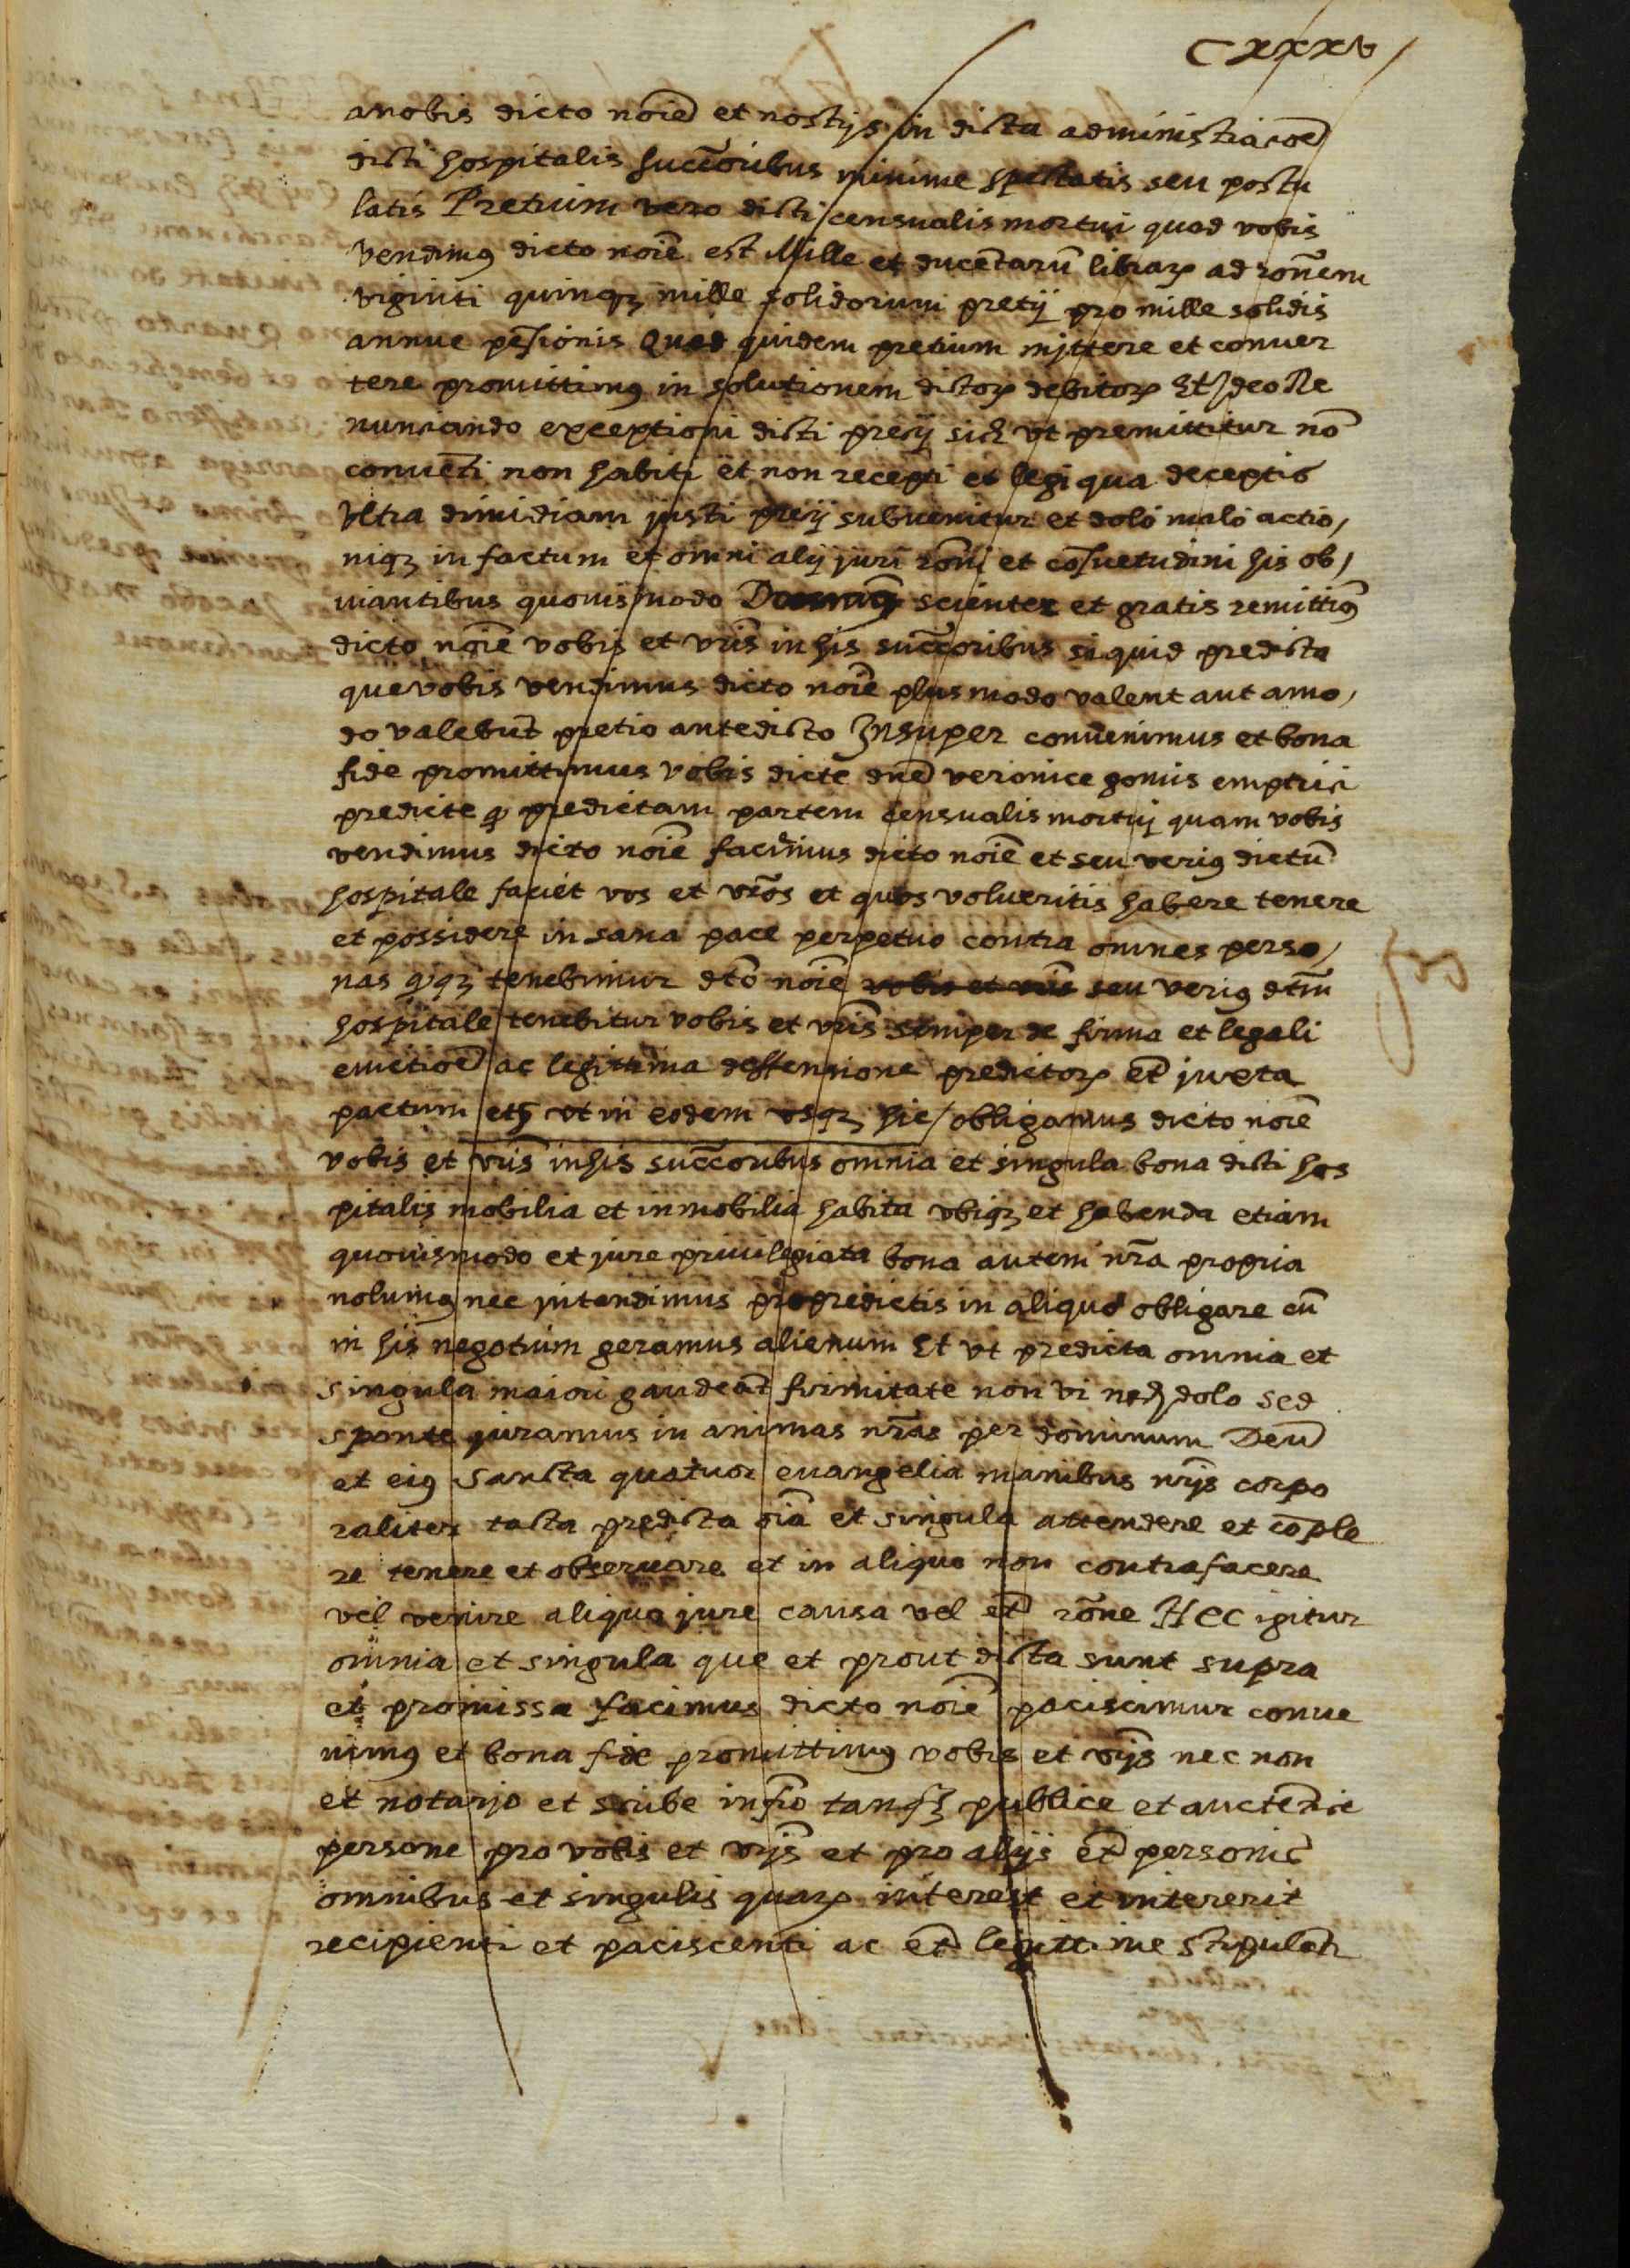 CXXXV
anobis dicto noīe et nostrjs in dicta administracōe
dicti hospitalis succ̄oribus minime spectatis seu postu
latis Pretium vero dicti censualis mortui quod vobis
vendimꝰ dicto noīe est Mille et ducentarū librarꝝ ad rōnem
viginti quinqꝫ mille solidorum pretij pro mille solidis
annue pēsionis Quod quidem pretium mjttere et conuer
tere promittimꝰ in solutionem dictorꝝ debitorꝝ Et Jdeo Re
nunciando exceptioni dicti precij sicꝫ vt premittitur nō
conuēti non habiti et non recepti et legi qua deceptis
Vltra dimidiam justi precij subuenitur et dolo malo actio,
niqꝫ in factum et omni alij juri rōni et cōsuetudini his ob,
uiantibus quouismodo Donamꝰ scienter et gratis remittimꝰ
dicto noīe vobis et vrīs in his succ̄oribus si quid predicta
que vobis vendimus dicto noīe plus modo valent aut amo,
do valebūt pretio antedicto Insuper conuenimus et bona
fide promittimus vobis dicte dn̄e veronice gomis emptrici
predicte ꝙ predictam partem censualis mortuj quam vobis
vendimus dicto noīe faciemus dicto noīe et seu veriꝰ dictū
hospitale faciet vos et vrōs et quos volueritis habere tenere
et possidere in sana pace perpetuo contra omnes perso,
nas ꝙqꝫ tenebimur dc̄to noīe vobis et vrīs seu veriꝰ dc̄tm
hospitale tenebitur vobis et vrīs semper de firma et legali
euictiōe ac legittima deffensione predictorꝝ et̄ juxta
pactum etꝫ vt in eodem vsqꝫ hic / obligamus dicto noīe
vobis et vrīs in his succ̄oribus omnia et singula bona dicti hos
pitalis mobilia et inmobilia habita vbiqꝫ et habenda etiam
quouismodo et jure priuilegiata bona autem nrā propria
nolumꝰ nec jntendimus pro predictis in aliquo obligare cū
in his negotium geramus alienum Et vt predicta omnia et
singula maiori gaudeāt firmitate non vi neqꝫ dolo sed
sponte juramus in animas nrās per dominum Deū
et eiꝰ Sancta quatuor euangelia manibus nrīs corpo
raliter tacta predicta oīa et singula attendere et cōple
re tenere et obseruare et in aliquo non contrafacere
vel venire aliquo jure causa vel et̄ rōne Hec igitur
omnia et singula que et prout dicta sunt supra
et promissa facimus dicto noīe paciscimur conue
nimꝰ et bona fide promittimꝰ vobis et vrīs nec non
et notarjo et scribe infrō tanqꝫ publice et auctētice
persone pro vobis et vrīs et pro alijs et̄ personis
omnibus et singulis quarꝝ interest et intererit
recipienti et paciscenti ac et̄ legittime stipulāti